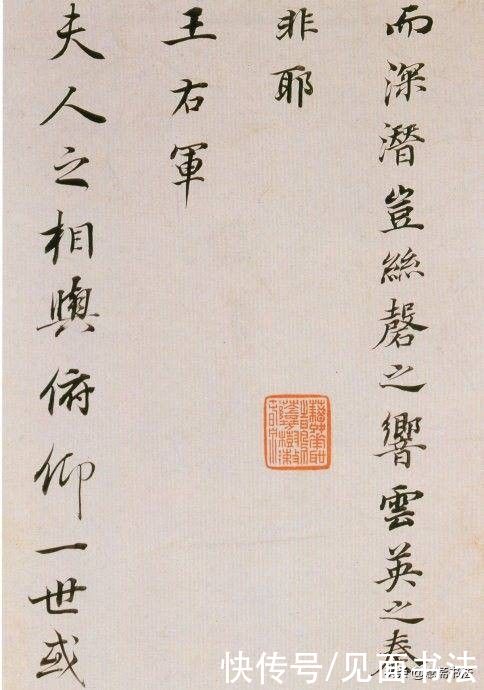 而深潛豈絲磬之響雲英之奏
非耶
王右軍
夫人之相與俯仰一世或
快传号/见面书法